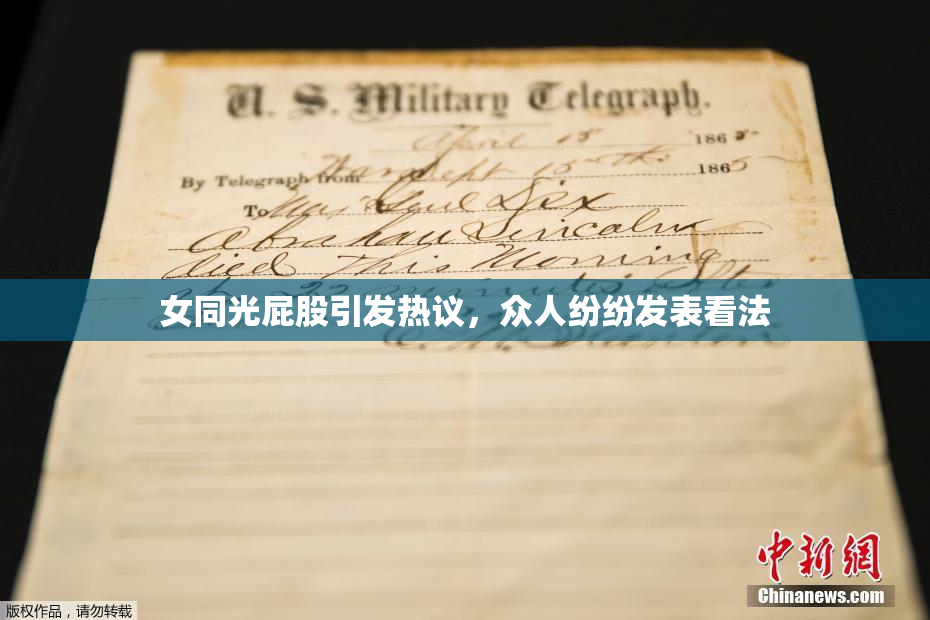 U. S. Military Telegraph.
April 15 1865
By Telegraph from War Dept 15th 1865
To Maj Genl Dix
Abraham Lincoln
died This Morning
at 22 minutes after
女同光屁股引发热议，众人纷纷发表看法
E. M. Stanton
中新網
Chinanews.com
版权作品，请勿转载